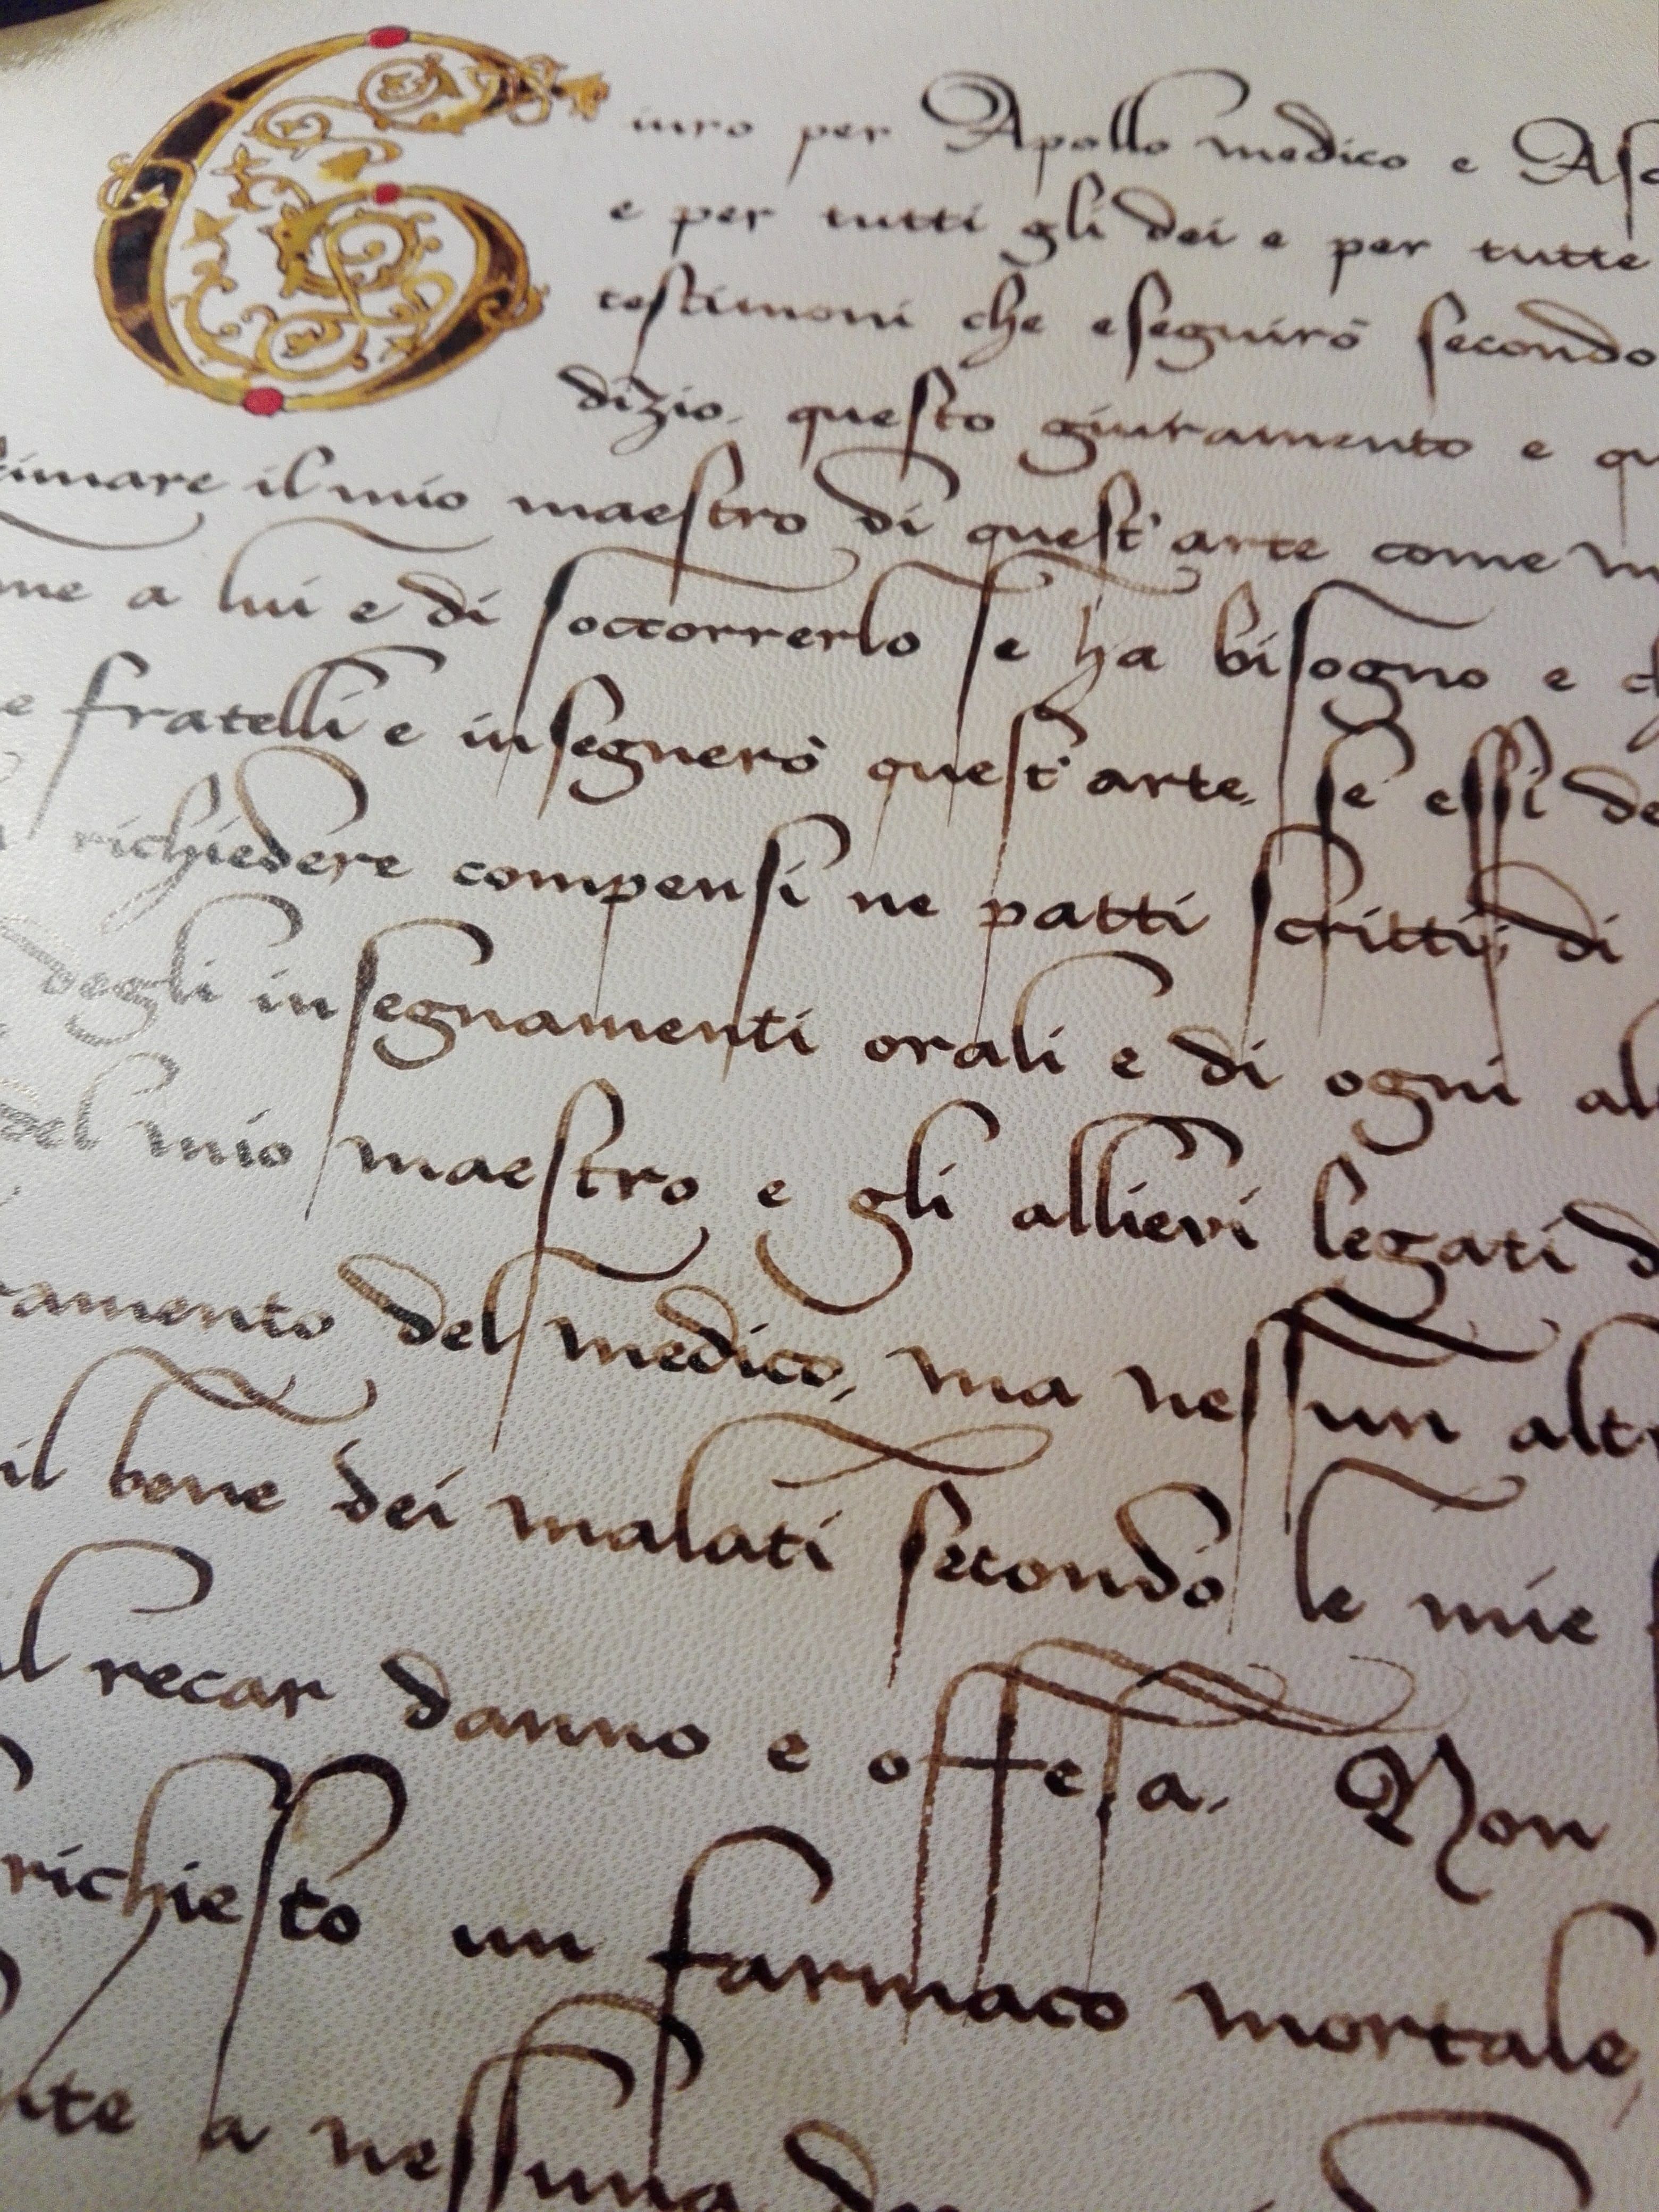 Giuro per Apollo medico e Asc
e per tutti gli dei e per tutte
testimoni che eseguirò secondo
dizio, questo giuramento e qu
timare il mio maestro di quest'arte come m
me a lui e di soccorrerlo se ha bisogno e c
e fratelli e insegnerò quest'arte, se essi de
richiedere compensi ne patti scritti; di
degli insegnamenti orali e di ogni alt
del mio maestro e gli allievi legati d
ramento del medico, ma nessun altr
il bene dei malati secondo le mie
al recar danno e offesa. Non
richiesto un farmaco mortale,
nte a nessuna